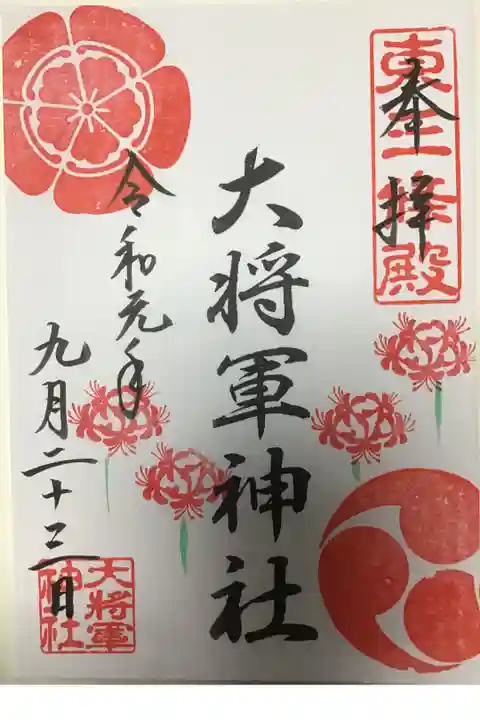 奉拝
東三條殿
大将軍神社
令和元年
九月二十三日
大将軍
神社